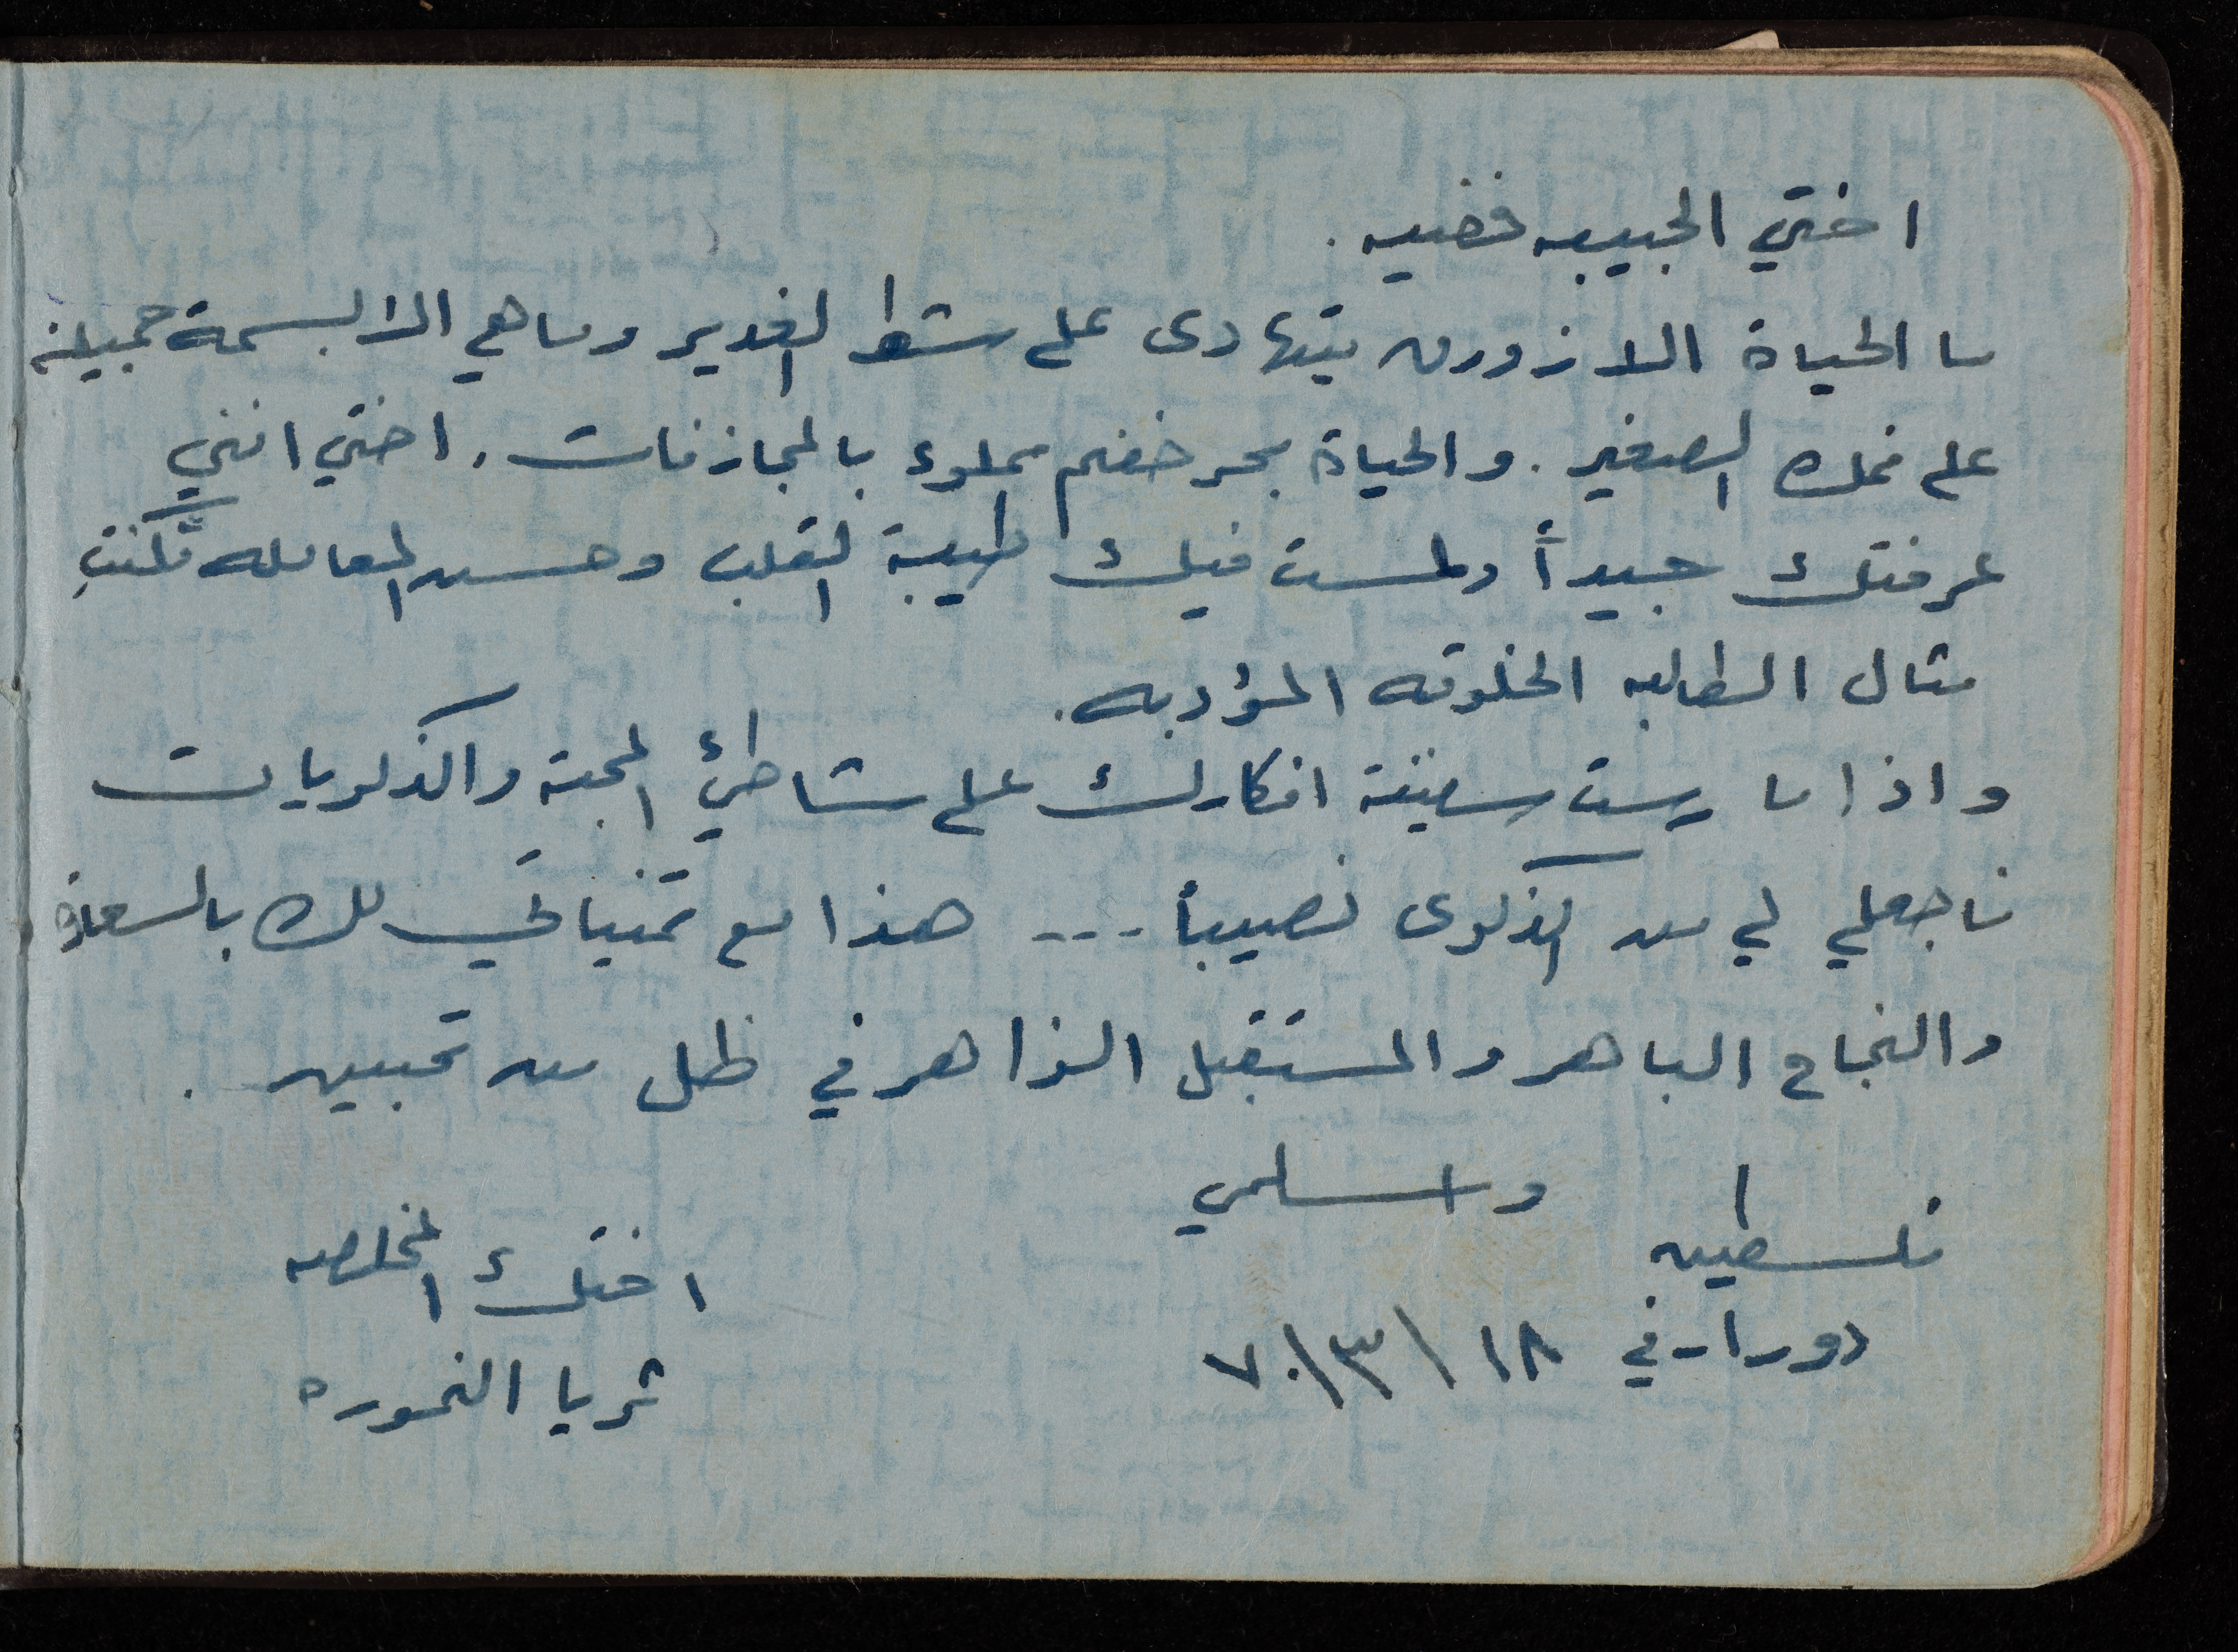 اختي الحبيبه خضيه.
ما الحياة الا زورق يتهادى على شط الغدير وما هي الا بسمة جميلة
على فمك الصغير. والحياة بحر خضم مملوء بالمجازفات. اختي انني
عرفتك جيداً ولمست فيك طيبة القلب وحسن المعامله فكنتِ
مثال الطالبه الخلوقه المؤدبه.
واذا ما رست سفينة افكارك على شاطئ المحبة والذكريات
فاجعلي لي من الذكرى نصيباً --- هذا مع تمنياتي لك بالسعادة
والنجاح الباهر والمستقبل الزاهر في ظل من تحبين.
واسلمي
فلسطين
دورا - في ١٨/٣/٧٠
اختك المخلصه
ثريا النموره